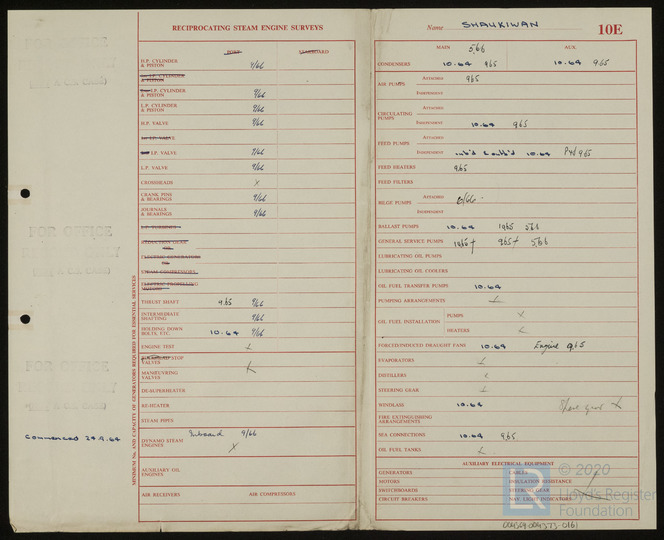 RECIPROCATING STEAM ENGINE SURVEYS
PORT STARBOARD
H.P. CYLINDER & PISTON 9/66
I.P. CYLINDER & PISTON
I.P. CYLINDER & PISTON 9/66
L.P. CYLINDER & PISTON 9/66
H.P. VALVE 9/66
1st I.P. VALVE
I.P. VALVE 9/66
L.P. VALVE 9/66
CROSSHEADS X
CRANK PINS & BEARINGS 9/66
JOURNALS & BEARINGS 9/66
L.P. TURBINE
REDUCTION GEAR
OR
ELECTRIC GENERATORS
OR
STEAM COMPRESSORS
ELECTRIC PROPELLING MOTORS
THRUST SHAFT 9.65 9/66
INTERMEDIATE SHAFTING 9/66
HOLDING DOWN BOLTS, ETC. 10.64 9/66
ENGINE TEST
BULKHEAD STOP VALVES
MANŒUVRING VALVES
DE-SUPERHEATER
RE-HEATER
STEAM PIPES
Commenced 24.9.64
DYNAMO STEAM ENGINES Inboard 9/66 X
AUXILIARY OIL ENGINES
AIR RECEIVERS AIR COMPRESSORS
MINIMUM No. AND CAPACITY OF GENERATORS REQUIRED FOR ESSENTIAL SERVICES
Name SHAUKIWAN 10E
MAIN 5,66 AUX.
CONDENSERS 10.64 965 10.64 965
AIR PUMPS ATTACHED 965
INDEPENDENT
CIRCULATING PUMPS ATTACHED
INDEPENDENT 10.64 965
FEED PUMPS ATTACHED
INDEPENDENT inb'd & outb'd 10.64 965
FEED HEATERS 965
FEED FILTERS
BILGE PUMPS ATTACHED 6/66
INDEPENDENT
BALLAST PUMPS 10.64 1065 566
GENERAL SERVICE PUMPS 1065 965 566
LUBRICATING OIL PUMPS
LUBRICATING OIL COOLERS
OIL FUEL TRANSFER PUMPS 10.64
PUMPING ARRANGEMENTS
OIL FUEL INSTALLATION PUMPS
HEATERS
FORCED/INDUCED DRAUGHT FANS 10.64 Engine 965
EVAPORATORS
DISTILLERS
STEERING GEAR
WINDLASS 10.64 Spare gear X
FIRE EXTINGUISHING ARRANGEMENTS
SEA CONNECTIONS 10.64 965
OIL FUEL TANKS
AUXILIARY ELECTRICAL EQUIPMENT
GENERATORS CABLES
MOTORS INSULATION RESISTANCE
SWITCHBOARDS STEERING GEAR
CIRCUIT BREAKERS NAV. LIGHT INDICATORS
© 2020
LR
Lloyd's Register
Foundation